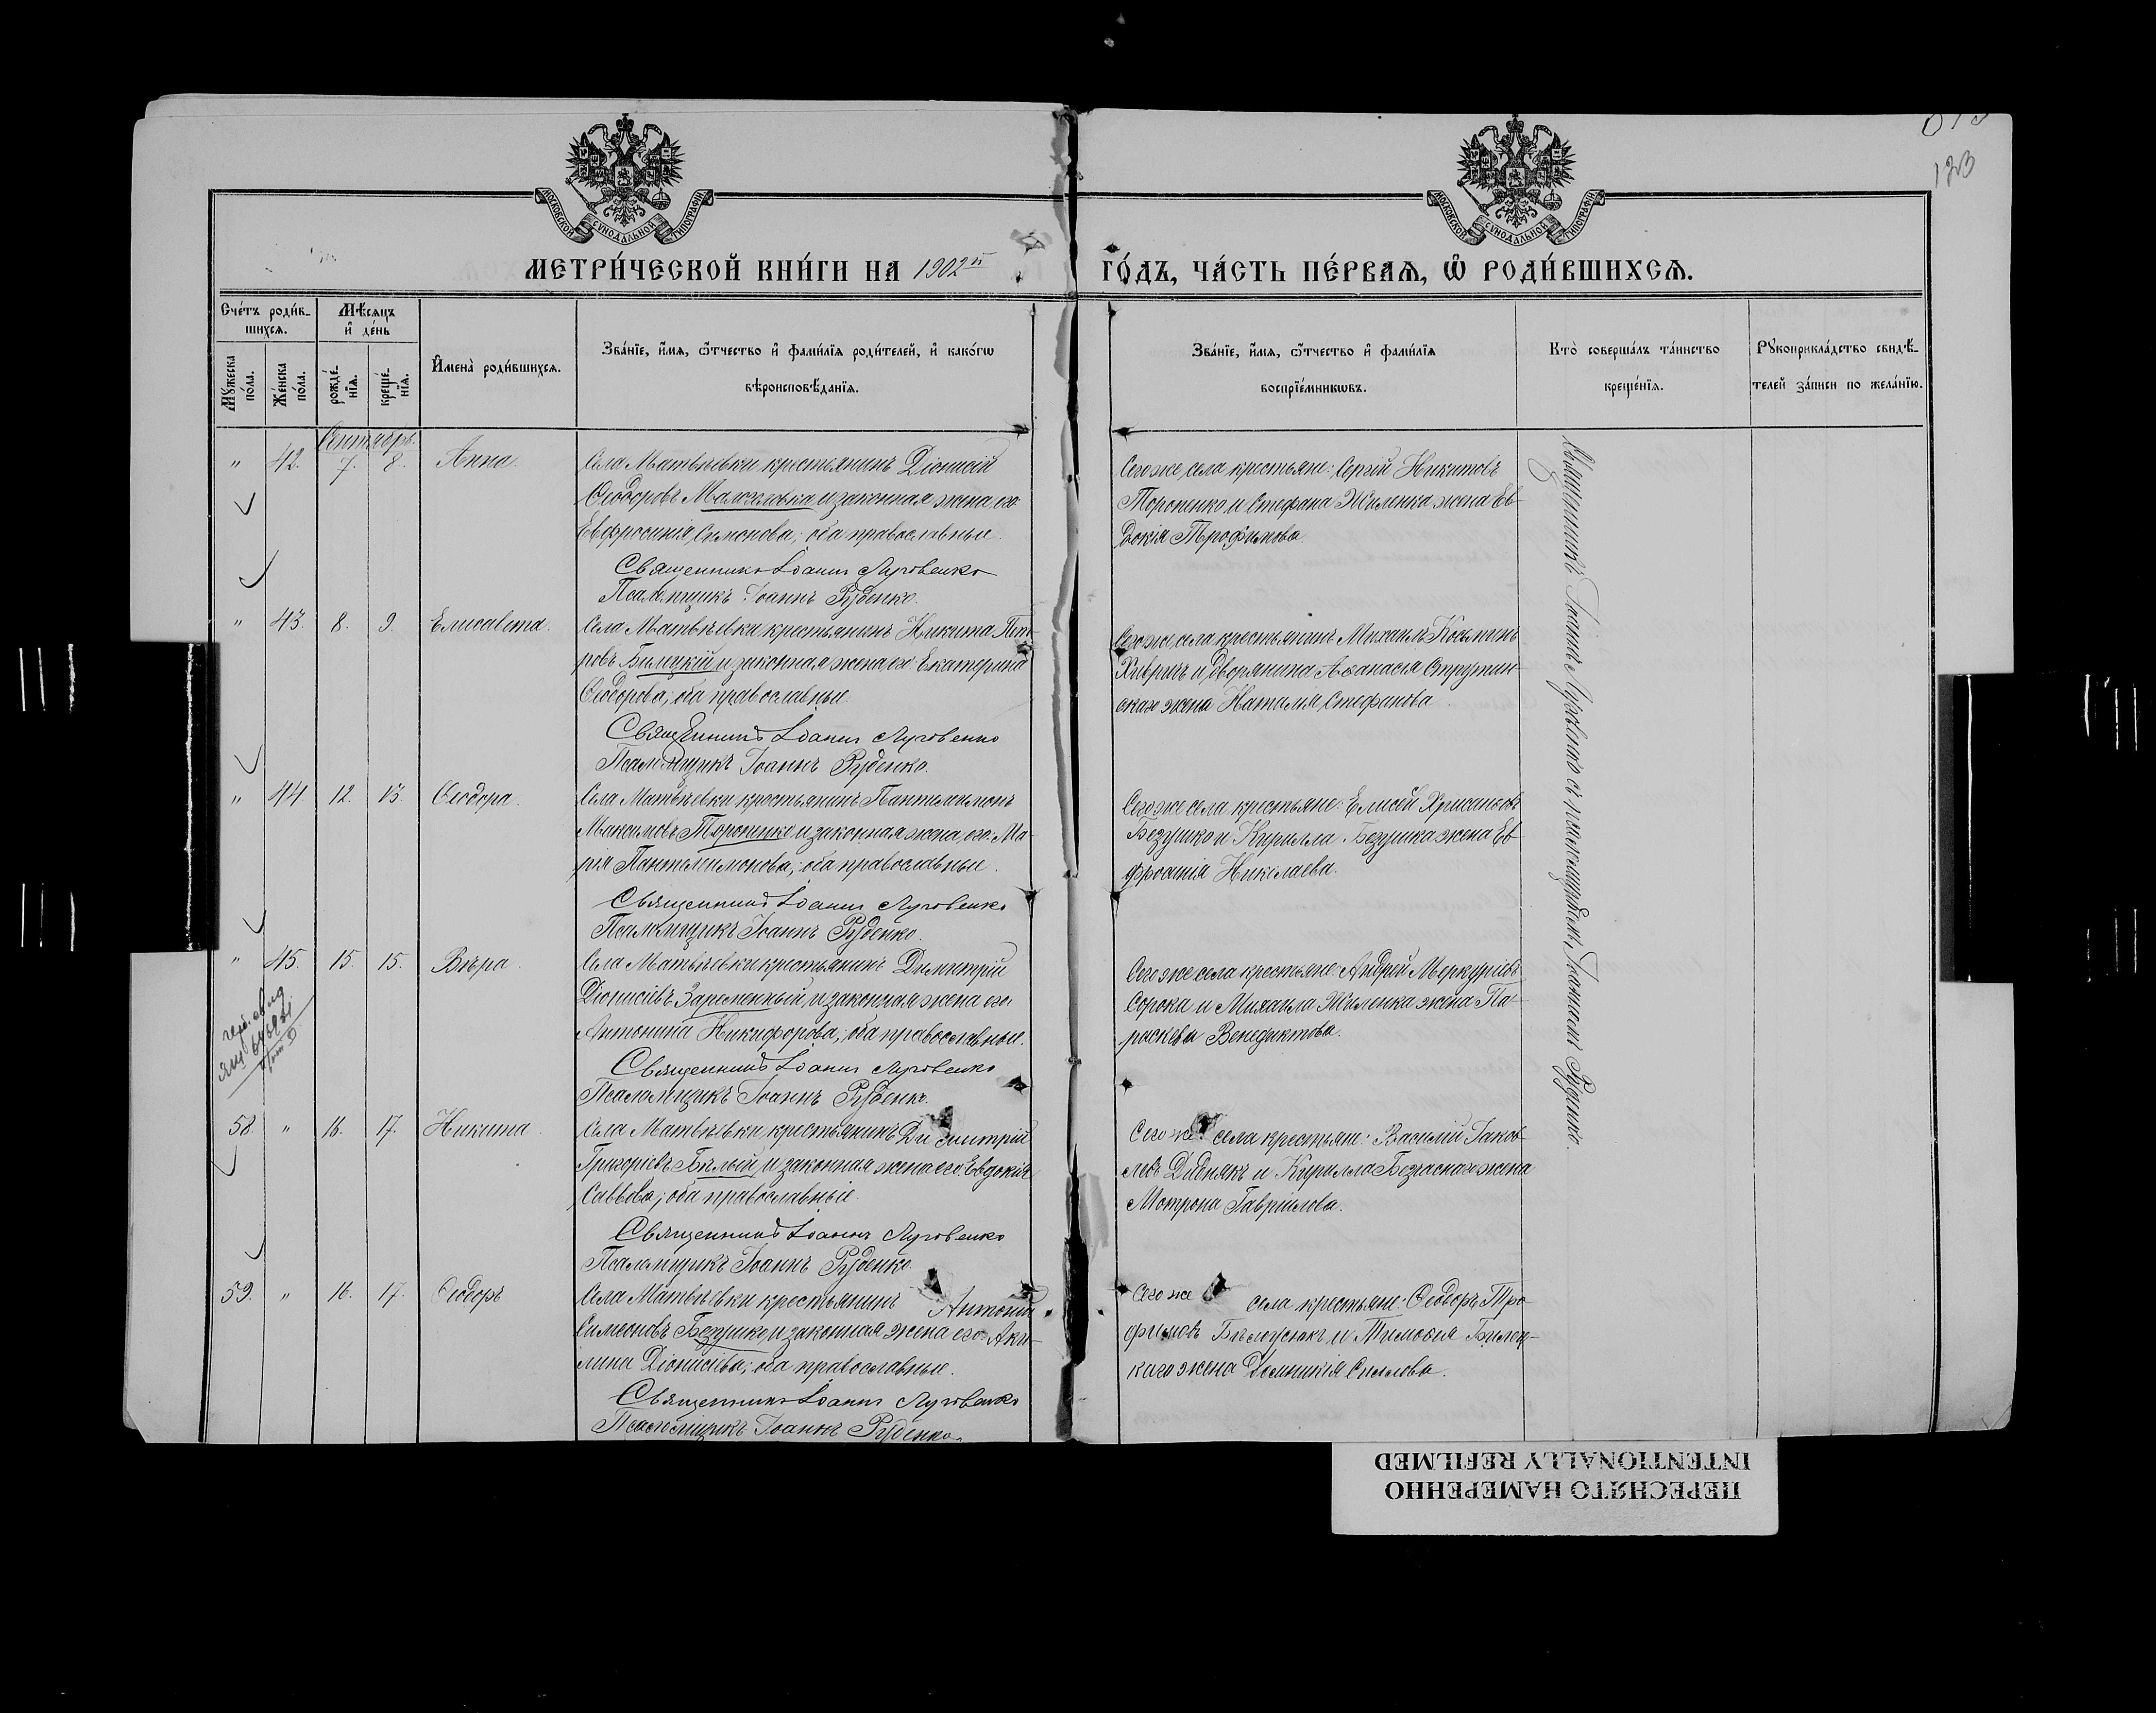 133
МОСКОВСКОЙ СУНОДАЛЬНОЙ ТИПОГРАФІИ
МОСКОВСКОЙ СУНОДАЛЬНОЙ ТИПОГРАФІИ
МЕТРИ́ЧЕСКОЙ КНИ́ГИ НА 1902й ГО́ДЪ, ЧА́СТЬ ПЕ́РВАѦ, Ѡ҆ РОДИ́ВШИХСѦ.
Сче́тъ роди́в-
шихсѧ.
Мꙋжеска по́ла.
Же́нска по́ла.
Мѣ́сѧцъ
и҆ де́нь
рожде́-
нїѧ.
креще́-
нїѧ.
И҆мена̀ роди́вшихсѧ.
Зва́нїе, и҆́мѧ, ѻ҆́тчество и҆ фами́лїѧ роди́телей, и҆ како́гѡ
вѣроисповѣ́данїѧ.
Зва́нїе, и҆́мѧ, ѻ҆́тчество и҆ фами́лїѧ
воспрїе́мникѡвъ.
Кто̀ соверша́лъ та́инство
креще́нїѧ.
Рꙋкоприкла́дство свидѣ́-
телей за́писи по жела́нїю.
Сентябрь.
" 42. 7. 8. Анна.
Села Матвѣевки крестьянинъ Діонисій
Ѳеодоровъ и законная жена его
Евфросинія Симонова; оба православные.
Священникъ Іоаннъ Луговенко
Псаломщикъ Іоаннъ Руденко.
Сего же села крестьяне: Сергій Никитовъ
Торопенко и Стефана Жиленка жена Ев-
докія Трофимова.
" 43. 8. 9. Елисавета.
Села Матвѣевки крестьянинъ Никита Пет-
ровъ Билецкій и законная жена его Екатерина
Ѳеодорова; оба православные.
Священникъ Іоаннъ Луговенко
Псаломщикъ Іоаннъ Руденко.
Сего же села крестьянинъ Михаилъ Козьминъ
Хивричъ и дворянина Аѳанасія Стружин-
скаго жена Наталія Стефанова.
" 44. 12. 13. Ѳеодора.
Села Матвѣевки крестьянинъ Пантелеимонъ
Максимовъ Торопенко и законная жена его Ма-
рія Пантелеимонова; оба православные.
Священникъ Іоаннъ Луговенко
Псаломщикъ Іоаннъ Руденко.
Сего же села крестьяне: Елисей Хрисанѳовъ
Безушко и Кирилла Безушка жена Ев-
фросинія Николаева.
" 45. 15. 15. Вѣра.
Села Матвѣевки крестьянинъ Димитрій
Діонисіевъ и законная жена его
Антонина Никифорова; оба православные.
Священникъ Іоаннъ Луговенко
Псаломщикъ Іоаннъ Руденко.
Сего же села крестьяне: Андрей Меркуріевъ
Сорока и Михаила Жиленка жена Па-
раскева Венедиктова.
58. " 16. 17. Никита.
Села Матвѣевки крестьянинъ Димитрій
Григоріевъ Бѣлый и законная жена его Евдокія
Саввова; оба православные.
Священникъ Іоаннъ Луговенко
Псаломщикъ Іоаннъ Руденко.
Сего же села крестьяне: Василій Іаков-
левъ Дидиякъ и Кирилла Безчаснаго жена
Мотрона Гавріилова.
59. " 16. 17. Ѳеодоръ
Села Матвѣевки крестьянинъ Антоній
Симеоновъ Безушко и законная жена его Аки-
лина Діонисіева; оба православные.
Священникъ Іоаннъ Луговенко
Псаломщикъ Іоаннъ Руденко.
Сего же села крестьяне: Ѳеодоръ Тро-
фимовъ Бѣлоусякъ и Тимоѳея Билец-
каго жена Домникія
Священникъ Іоаннъ Луговенко съ псаломщикомъ Іоанномъ Руденко.
ПЕРЕСНЯТО НАМЕРЕННО
INTENTIONALLY REFILMED